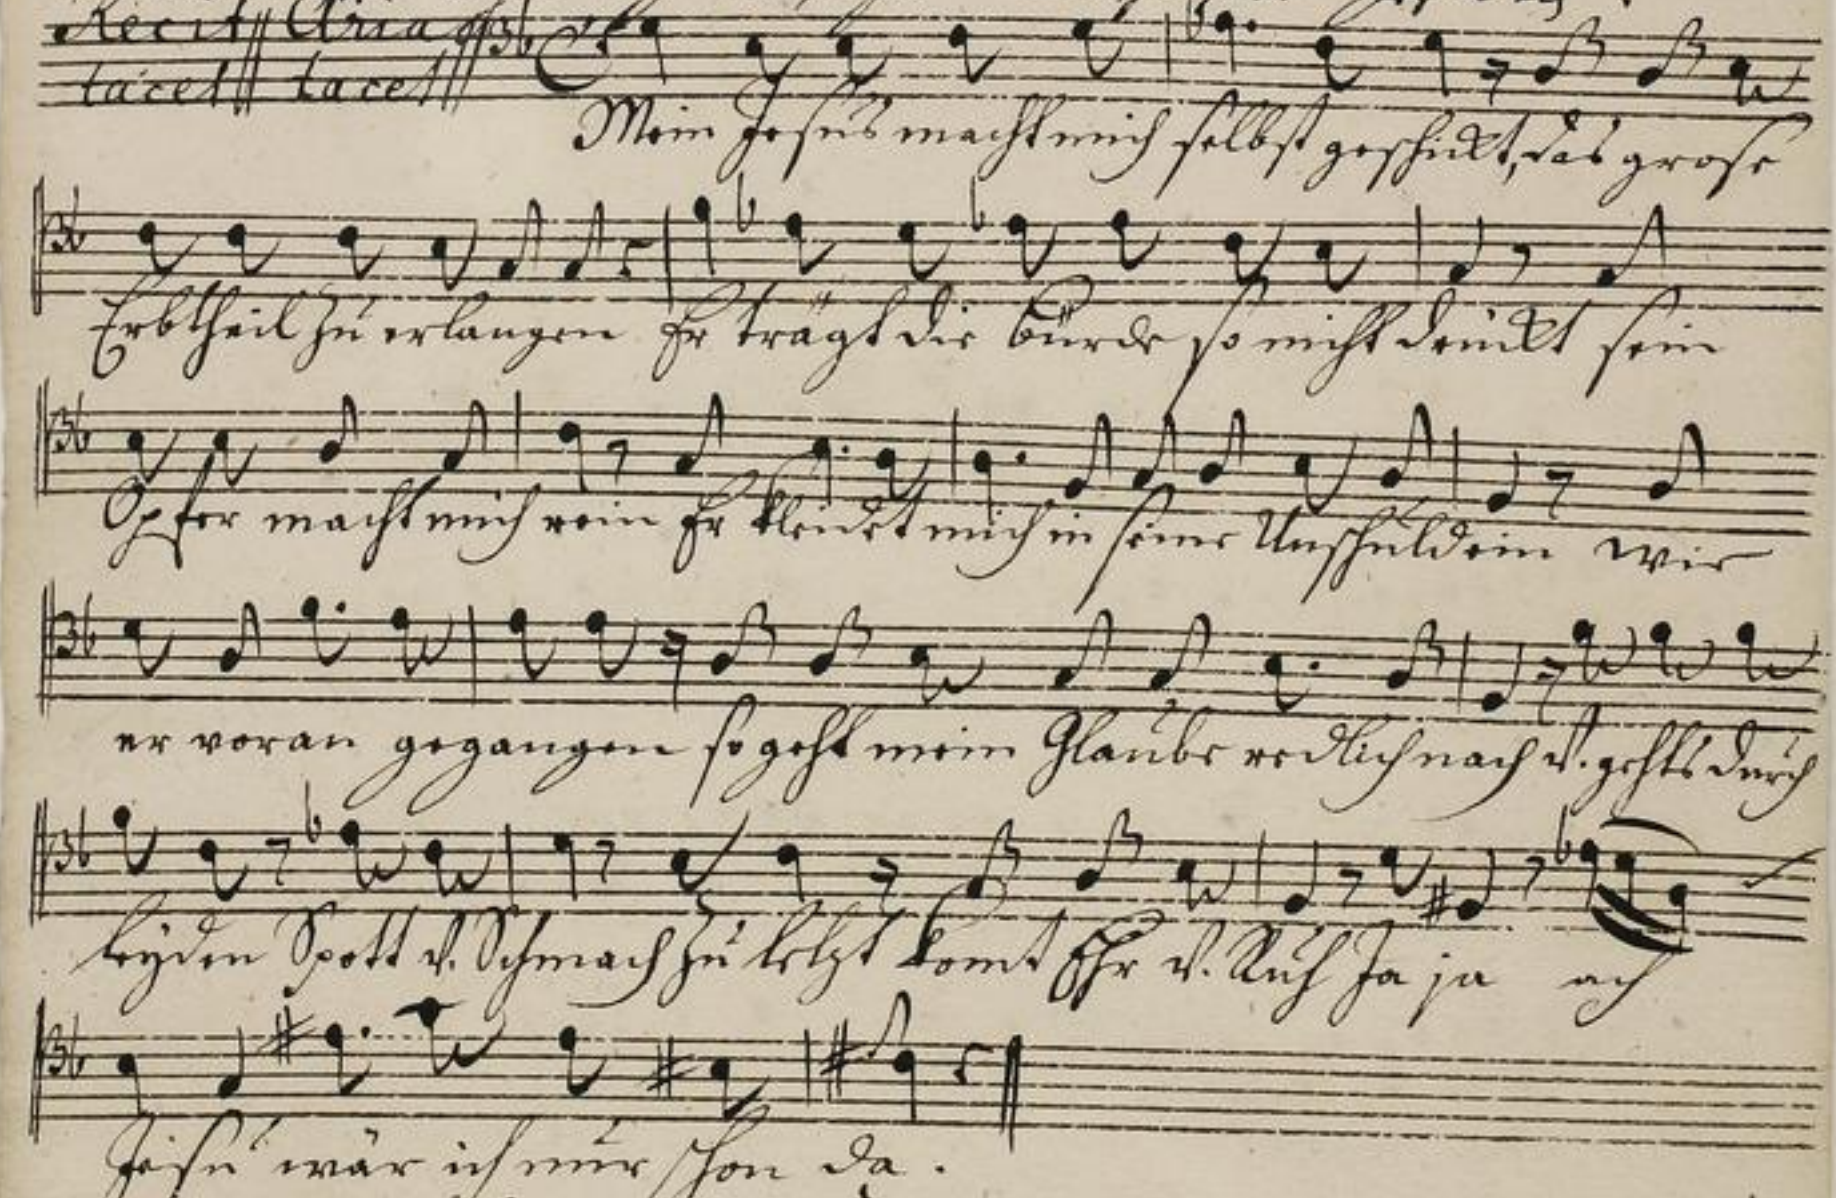 Recit || Aria ||
tacet || tacet ||
Mein Jesus macht mich selbst geschickt, das grose
Erbtheil zu erlangen Er trägt die bürde so nicht drückt sein
Opfer macht mich rein Er kleidet mich in seine Unschuld ein wie
er voran gegangen so geht mein Glaube redlich nach v. gehts durch
leyden Spott v. Schmach zu letzt komt Ehr v. Ruh Ja ja ach
Jesu wär ich nur schon da.